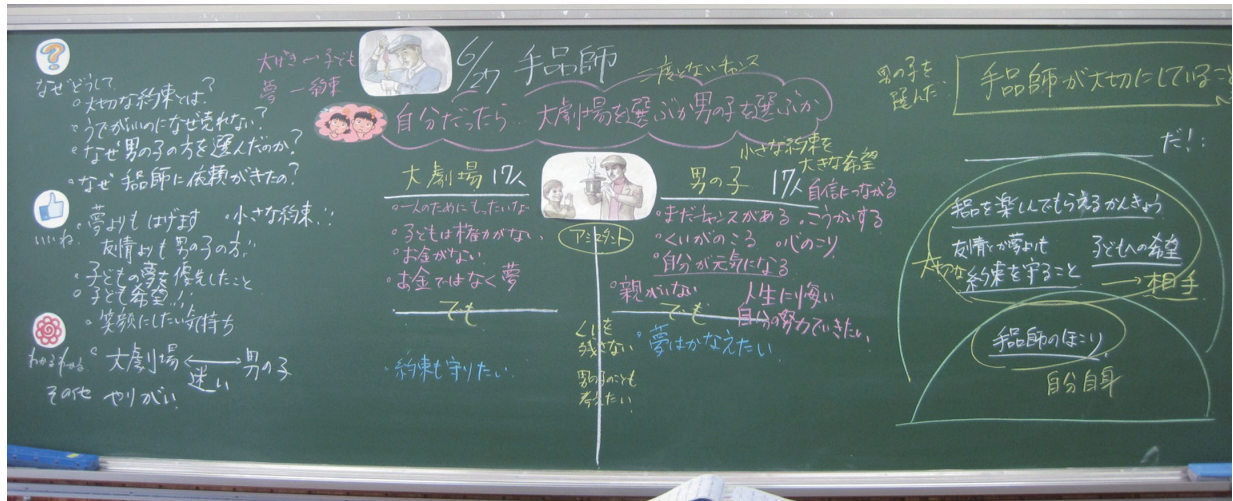 ?
なぜどうして
・大切な約束とは?
・うでがいいのになぜ売れない?
・なぜ男の子の方を選んだのか?
・なぜ手品師に依頼がきたの?
いいね
・夢よりもはげます ・小さな約束!!
友情よりも男の子の方!!
・子どもの夢を優先したこと
・子ども希望!!
・笑顔にしたい気持ち
わかるわかる
・大劇場 ⟷ 男の子
迷い
その他 やりがい
夢 ー 約束
6/27 手品師
二度とないチャンス
自分だったら…大劇場を選ぶか男の子を選ぶか
大劇場 17人
・一人のためにもったいない
・子どもは権力がない
・お金がない
・お金ではなく夢
でも
・約束も守りたい
アシスタント
くいを
残さない
男の子のことも
考えたい
小さな約束を
大きな希望
男の子 17人
自信につながる
・まだチャンスがある ・こうかいする
・くいがのこる ・心のこり
・自分が元気になる
・親がいない
人生に悔い
自分の努力でいきたい
でも
・夢はかなえたい
男の子を
選んだ
手品師が大切にしていること
だ!!
手品を楽しんでもらえるかんきょう
友情とか夢よりも
大切な約束を守ること
子どもへの希望
→相手
手品師のほこり
自分自身